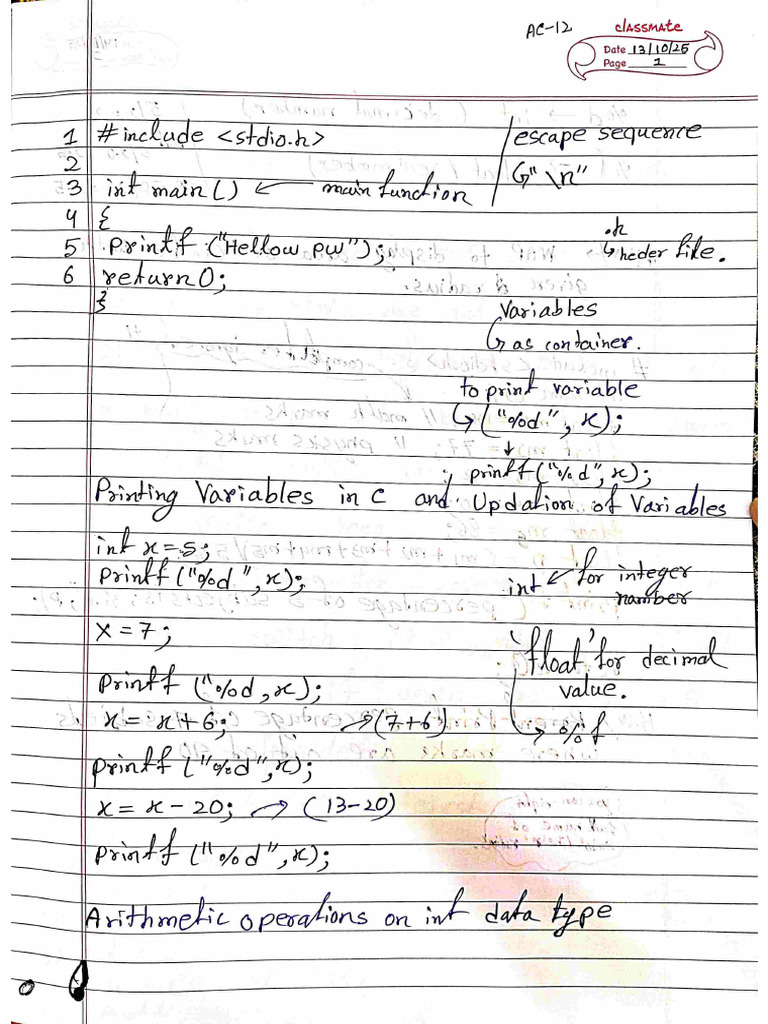 AC-12
classmate
Date 13/10/25
Page 1
1 #include <stdio.h>
2
3 int main() ← main function
4 {
5 printf ("Hellow pw");
6 return 0;
}
escape sequence
↳ "\n"
.h
↳ heder file.
Variables
↳ as container.
to print variable
↳ ("%d", x);
↓
printf ("%d", x);
Printing Variables in C and Updation of Variables
int x = 5;
printf ("%d ", x);
x = 7;
printf ("%d, x);
x = x + 6; → (7+6)
printf ("%d", x);
x = x - 20; → (13-20)
printf ("%d", x);
int ← for integer
number
'float' for decimal
value.
↳ %f
Arithmetic operations on int data type